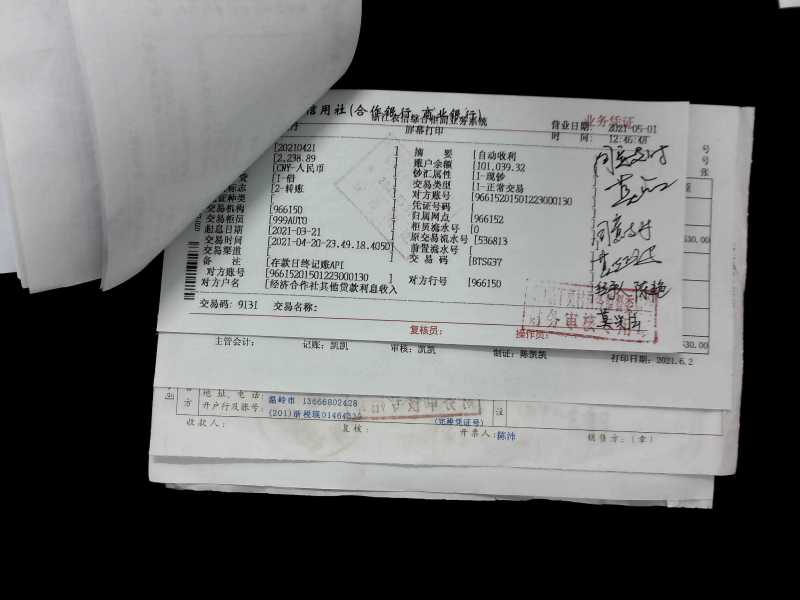 信用社(合作银行、商业银行)
业务凭证
浙江农信综合柜面业务系统
屏幕打印
营业日期: 2021-05-01
时 间: 12:46:48
[20210421 ] 摘 要 [自动收利
[2,238.89 ] 账户余额 [101,039.32
[CNY-人民币 ] 钞汇属性 [1-现钞
费 [1-借 ] 交易类型 [1-正常交易
标志 [2-转账 ] 对方账号 [966152015012230001​30
证种类 [ ] 凭证号码 [
交易机构 [966150 ] 归属网点 [966152
交易柜员 [999AUTO ] 柜员流水号 [0
起息日期 [2021-03-21 ] 原交易流水号 [536813
交易时间 [2021-04-20-23.49.18.4050] 前置流水号 [
交易渠道 [ ] 交 易 码 [BTSG37
备 注 [在款日终记账API ]
对方账号 [966152015012230001​30 ] 对方行号 [966150
对方户名 [经济合作社其他贷款利息收入
交易码: 9131 交易名称:
复核员: 操作员:
同意支付
同意支付
经手人 陈艳
财务审核专用
号
号
张
额
530.00
530.00
主管会计: 记账: 凯凯 审核: 凯凯 制证: 陈凯凯 打印日期: 2021.6.2
方
地址、电话: 温岭市 13666802428
开户行及账号: (201)浙税联0146423
注
(完税凭证号)
收款人: 复核: 开票人: 陈沛 销售方: (章)